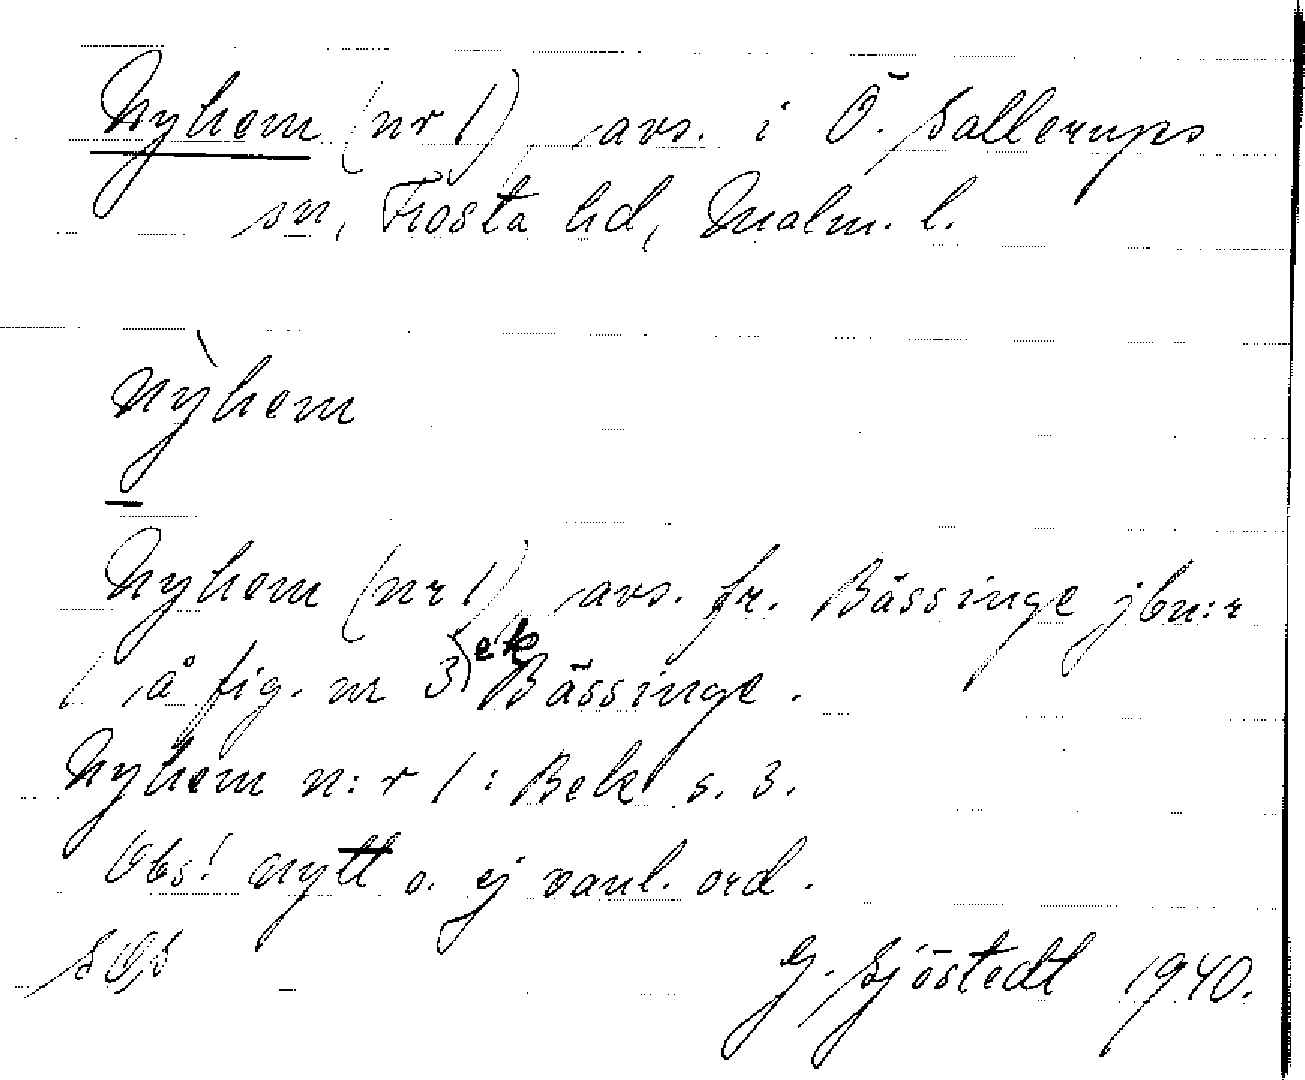 Nyhem (nr 1) avs. i Ö. Sallerups
sn, Frosta hd, Malm. l.
nỳhem
Nyhem (nr 1) avs. fr. Bässinge jbn:r
1 å fig. nr 3) ek Bässinge.
Nyhem n:r 1 : Bek s. 3.
Obs! nytt o. ej vanl. ord.
G. Sjöstedt 1940.